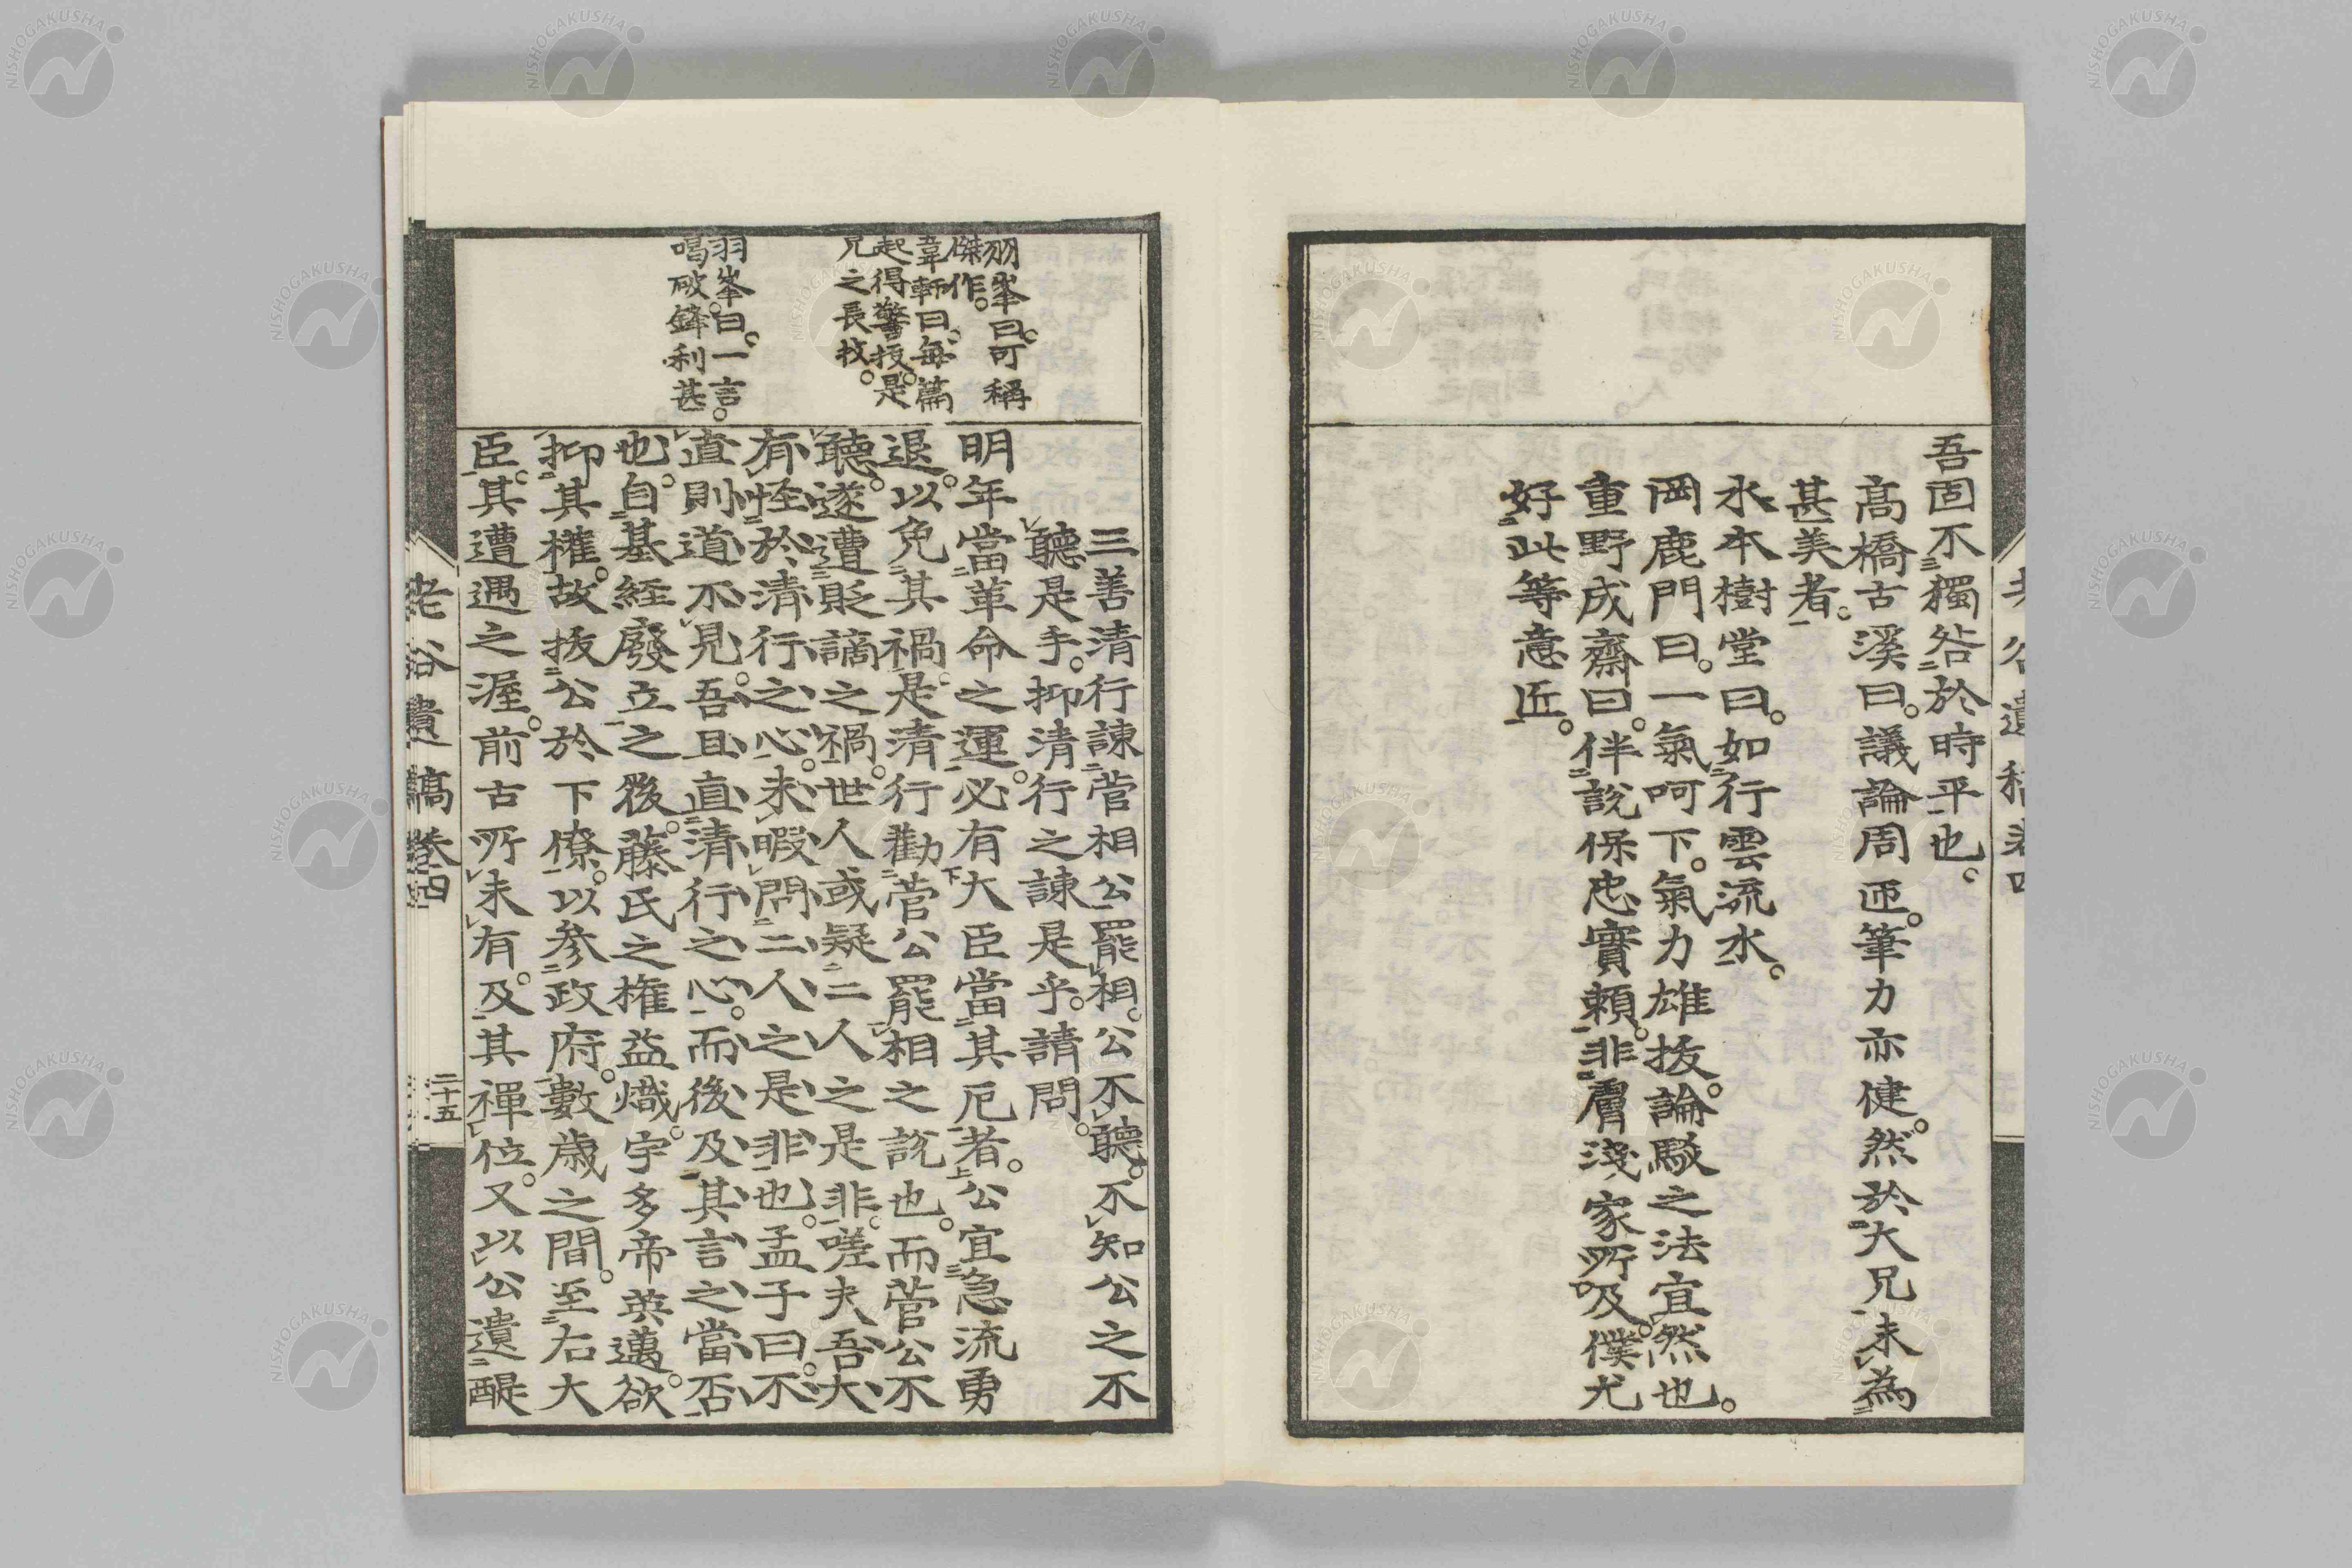 吾固不獨咎於時平也。
高橋古溪曰。議論周匝。筆力亦健。然於大兄未為
甚美者。
水本樹堂曰。如行雲流水。
岡鹿門曰。一氣呵下。氣力雄拔。論駁之法宜然也。
重野成齋曰。伴說保忠實賴。非膚淺家所及。僕尤
好此等意匠。
羽峯曰。可稱
傑作。
韋軒曰。每篇
起得警拔。是
兄之長技。
羽峯曰。一言。
喝破鋒利甚
三善清行諫菅相公罷相。公不聽。不知公之不
聽是乎。抑清行之諫是乎。請問。
明年當革命之運。必有大臣當其厄者。公宜急流勇
退。以免其禍。是清行勸菅公罷相之說也。而菅公不
聽。遂遭貶謫之禍。世人或疑二人之是非。嗟夫吾大
有怪於清行之心。未暇問二人之是非也。孟子曰。不
直則道不見。吾且直清行之心。而後及其言之當否
也。自基經廢立之後。藤氏之權益熾。宇多帝英邁。欲
抑其權。故拔公於下僚。以參政府。數歲之間。至右大
臣。其遭遇之渥。前古所未有。及其禪位。又以公遺醍
老谷遺稿卷四
二十五
NISHOGAKUSHA